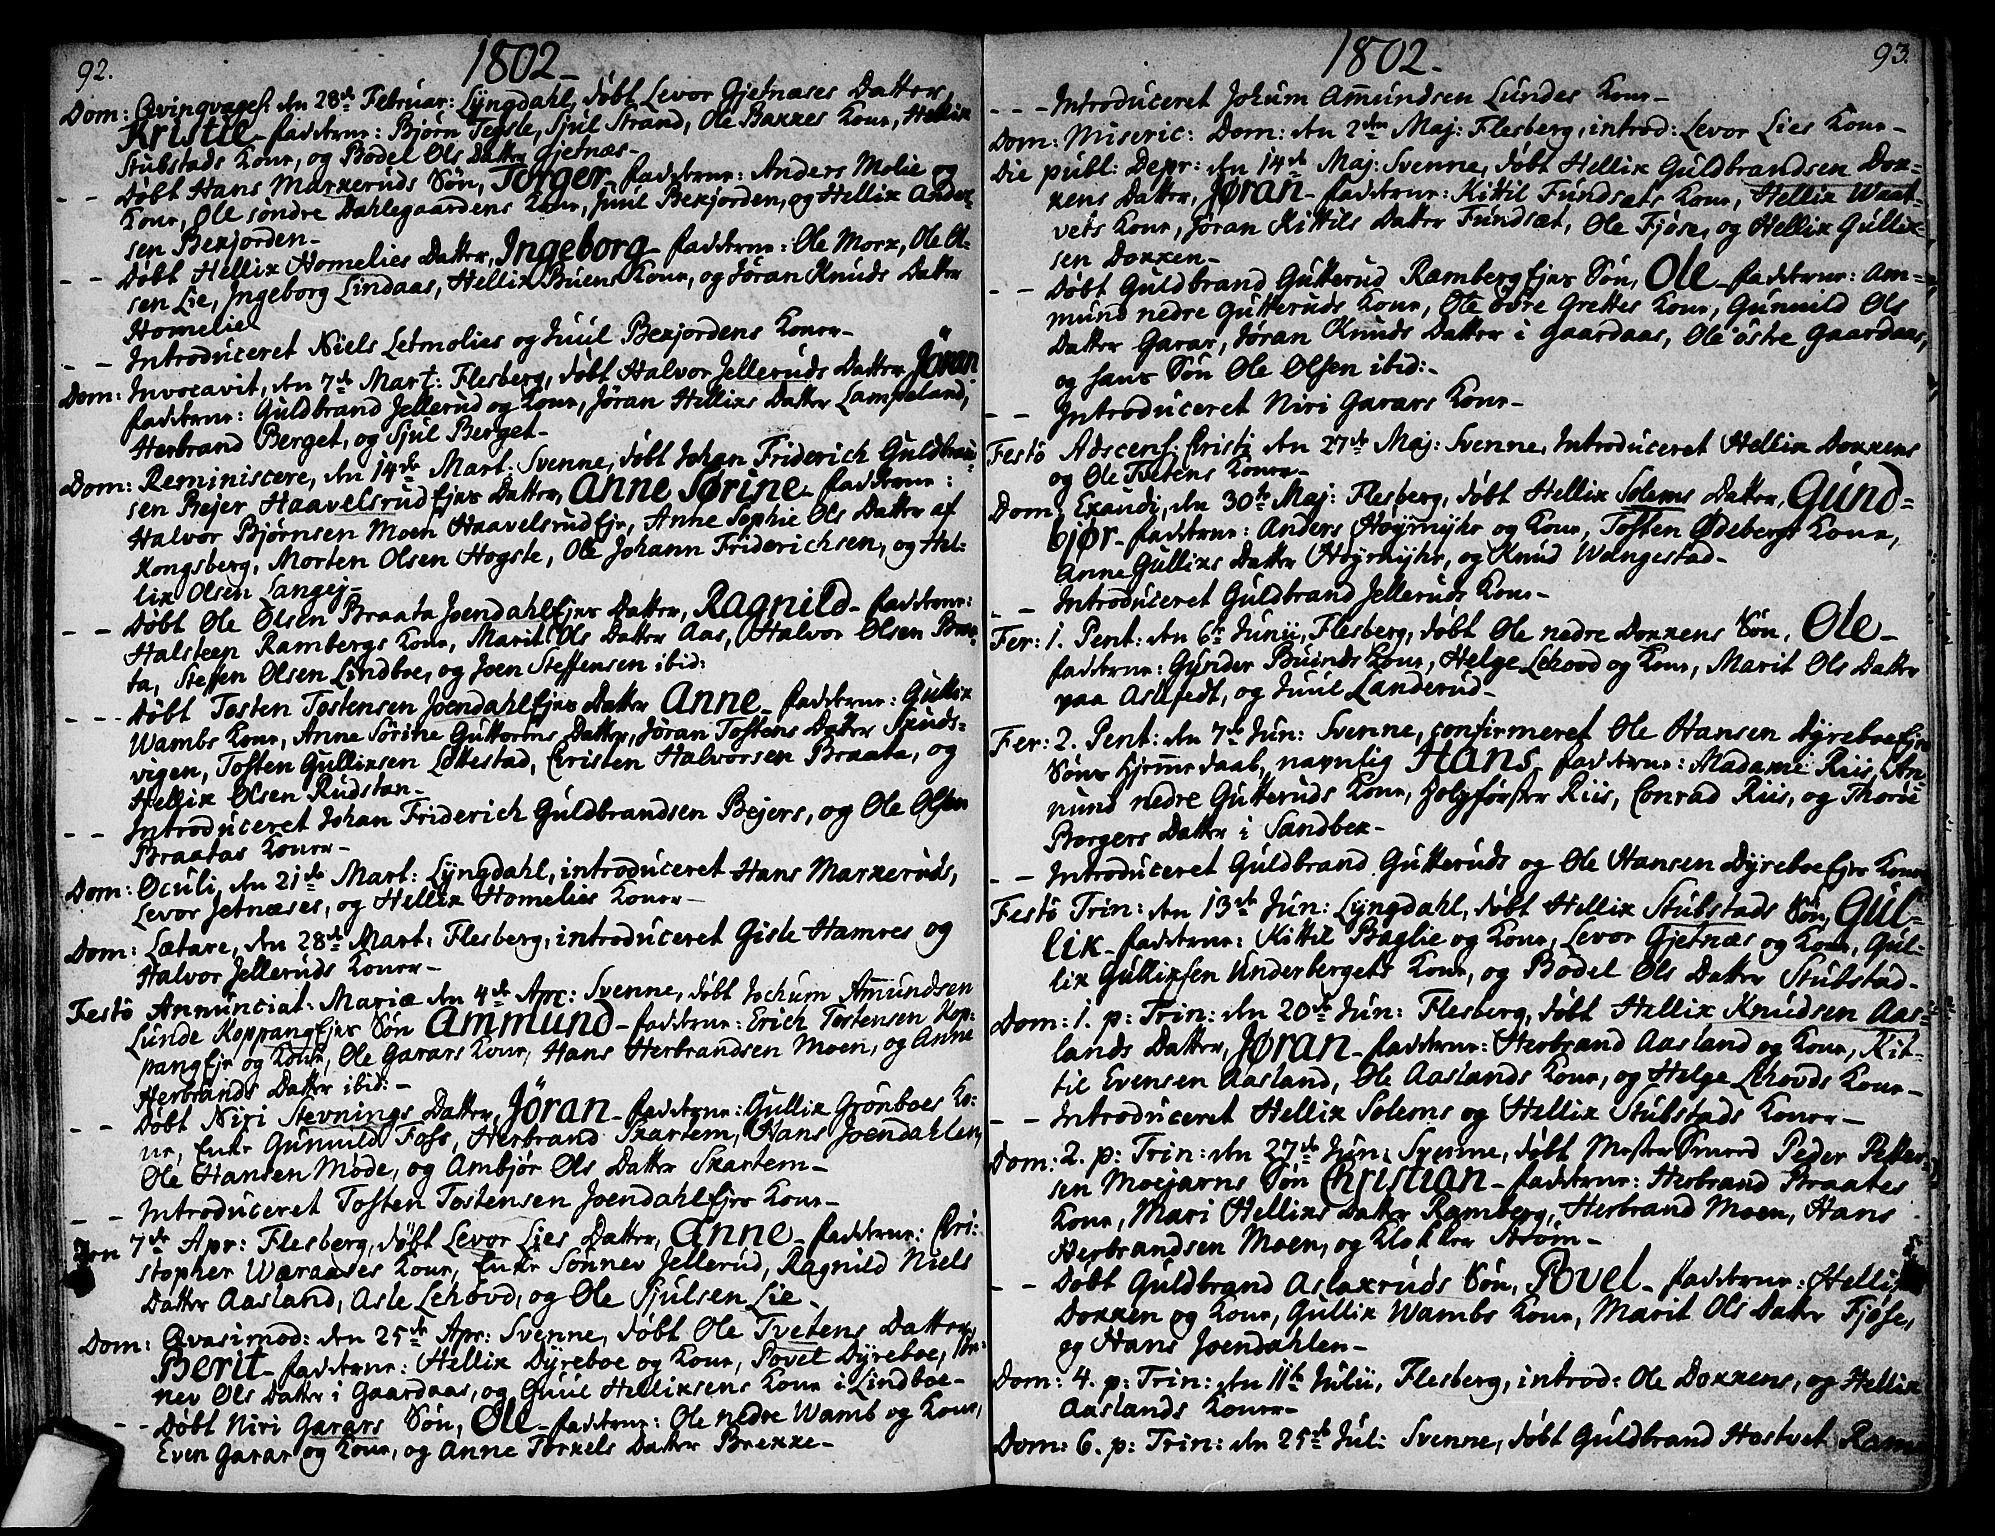 92.
1802-
Dom: Qvinqvages: den 28de Februar: Lyngdahl, døbt Levor Gjetnæses Datter,
Kristie - fadderne: Bjørn Teksle, Sjul Strand, Ole Bakkes Kone, Hellix
Stubstads Kone, og Bodel Ols Datter Gjetnæs-
- - Døbt Hans Markeruds Søn, Torger - fadderne: Anders Molie og
Kone, Ole søndre Dahlegaardens Kone, Juul Bekjorden, og Hellix Ander-
sen Bekjorden-
- - Døbt Hellix Homelies Datter, Ingeborg - fadderne: Ole Mork, Ole Ol-
sen Lie, Ingeborg Lindaas, Hellix Buens Kone, og Jøran Knuds Datter
Homelie
- - Introduceret Niels Letmolies og Juul Bekjordens Koner-
Dom: Invocavit, den 7de Mart: Flesberg, døbt Halvor Jelleruds Datter Jöran
fadderne: Guldbrand Jellerud og Kone, Jøran Hellixs Datter Lampeland,
Herbrand Berget, og Sjul Berget-
Dom: Reminiscere, den 14de Mart: Svenne, døbt Johan Friderich Guldbran-
sen Bejer Haavelsrud Ejes Datter, Anne Sørine - fadderne:
Halvor Bjørnsen Moen Haavelsrud Eje, Anne Sophie Ols Datter af
Kongsberg, Morten Olsen Hogste, Ole Johann Friderichsen, og Hel-
lix Olsen Langej-
- - Døbt Ole Olsen Braata Joendahl Ejes Datter, Ragnild - fadderne:
Halsteen Rambergs Kone, Marit Ols Datter Aas, Halvor Olsen Braa-
ta, Steffen Olsen Lindboe, og Joen Steffensen ibid:
- - - Døbt Tosten Tostensen Joendahl Ejes Datter Anne - fadderne: Gullix
Wambs Kone, Anne Sörine Guttorms Datter, Jøran Tostens Datter Skuds-
vigen, Tosten Gullixsen Løkkestad, Cristen Halvorsen Braata, og
Hellix Olsen Rudstan-
- - Introduceret Johan Friderich Guldbrandsen Bejers, og Ole Olsen
Braatas Koner-
Dom: Oculi, den 21de Mart: Lyngdahl, introduceret Hans Markeruds,
Levor Jetnæses, og Hellix Homelies Koner-
Dom: Lætare, den 28de Mart: Flesberg, introduceret Gisle Hamres og
Halvor Jelleruds Koner-
Festo Annunciat: Mariæ den 4de Apr: Svenne, døbt Jochum Amundsen
Lunde Koppang Ejes Søn Ammund - fadderne: Erich Tostensen Kop-
pang Eje og Kone, Ole Garars Kone, Hans Herbrandsen Moen, og Anne
Herbrands Datter ibid:-
- - Døbt Niri Stevnings Datter, Jöran - fadderne: Gullix Grønboes Ko-
ne, Enke Gunnild Foss, Herbrand Skartem, Hans Joendahlen,
Ole Hansen Mode, og Ambjør Ols Datter Skartem-
- - Introduceret Tosten Tostensen Joendahl Ejes Kone-
Den 7de Apr: Flesberg, døbt Levor Lies Datter, Anne - fadderne: Cri-
stopher Wæraases Kone, Enke Sønnev Jellerud, Ragnild Niels
Datter Aasland, Asle Lehovd, og Ole Sjulsen Lie-
Dom: Qvasimod: den 25de Apr: Svenne, døbt Ole Tvetens Datter,
Berit - fadderne: Hellix Dyreboe og Kone, Povel Dyreboe,
nev Ols Datter i Gaardaas, og Guul Hellixsens Kone i Lindboe-
- - Døbt Niri Garars Søn, Ole - fadderne: Ole nedre Wamb og Kone,
Even Garar og Kone, og Anne Torkels Datter Brekke-
93.
1802-
- - - Introduceret Johum Ammundsen Lundes Kone-
Dom: Miseric: Dom: den 2den Maj: Flesberg, introd: Levor Lies Kone-
Die publ: Depr: den 14de Maj: Svenne, døbt Hellix Guldbrandsen Dok-
kens Datter, Jøran - fadderne: Kittil Fundsæts Kone, Hellix Waat-
vets Kone, Jøran Kittils Datter Fundsæt, Ole Fjøse, og Hellix Gullix-
sen Dokken-
- - Døbt Guldbrand Gutterud Ramberg Ejes Søn, Ole - fadderne: Am-
mund nedre Gutteruds Kone, Ole övre Grettes Kone, Gunnild Ols
Datter Garar, Jøran Knuds Datter i Gaardaas, Ole östre Gaardaas,
og hans Søn Ole Olsen ibid:-
- - Introduceret Niri Garars Kone-
Festo Adscens: Cristi den 27de Maj: Svenne, Introduceret Hellix Dokkens
og Ole Tvetens Koner-
Dom: Exaudi, den 30te Maj: Flesberg, døbt Hellix Solems Datter, Gund-
bjør - fadderne: Anders Høyrnyhr og Kone, Tosten Ødebergs Kone,
Anne Gullixs Datter Høyrnyhr, og Knud Wangestad-
- - Introduceret Guldbrand Jelleruds Kone-
Fer: 1. Pent: den 6te Junii, Flesberg, døbt Ole nedre Dokkens Søn, Ole-
fadderne: Gunder Buinds Kone, Helge Lehovd og Kone, Marit Ols Datter
paa Aslefedt, og Juul Landerud-
Fer: 2. Pent: den 7de Jun: Svenne, confirmeret Ole Hansen Dyreboe Ejes
Søns hjemmedaab, navnlig Hans - fadderne: Madame Riis, Am-
mund nedre Gutteruds Kone, Holzførster Riis, Conrad Riis, og Thorie
Borgers Datter i Sandbek-
- - Introduceret Guldbrand Gutteruds og Ole Hansen Dyreboe Ejes Koner
Festo Trin: den 13de Jun: Lyngdahl, døbt Hellix Stubstads Søn, Gul-
lik - fadderne: Kittil Baglie og Kone, Levor Gjetnæs og Kone, Gul-
lix Gullixsen Underbergets Kone, og Bodel Ols Datter Stubstad-
Dom: 1. p: Trin: den 20de Jun: Flesberg, døbt Hellix Knudsen Aas-
lands Datter, Jøran - fadderne: Herbrand Aasland og Kone, Kit-
til Evensen Aasland, Ole Aaslands Kone, og Helge Lehovds Kone-
- - Introduceret Hellix Solems og Hellix Stubstads Koner-
Dom: 2. p: Trin: den 27de Jun: Svenne, døbt Mester Smed Peder Petter-
sen Moejarns Søn Christian - fadderne: Herbrand Braates
Kone, Mari Hellixs Datter Ramberg, Herbrand Moen, Hans
Herbrandsen Moen, og Klokker Strøm-
- - Døbt Guldbrand Aslaxruds Søn, Povel - fadderne: Hellix
Dokken og Kone, Gullix Wambs Kone, Marit Ols Datter Fjøse,
og Hans Joendahlen-
Dom: 4. p: Trin: den 11te Julii, Flesberg, introd: Ole Dokkens, og Hellix
Aaslands Koner-
Dom: 6. p: Trin: den 25de Jul: Svenne, døbt Guldbrand Hostvet Ram-